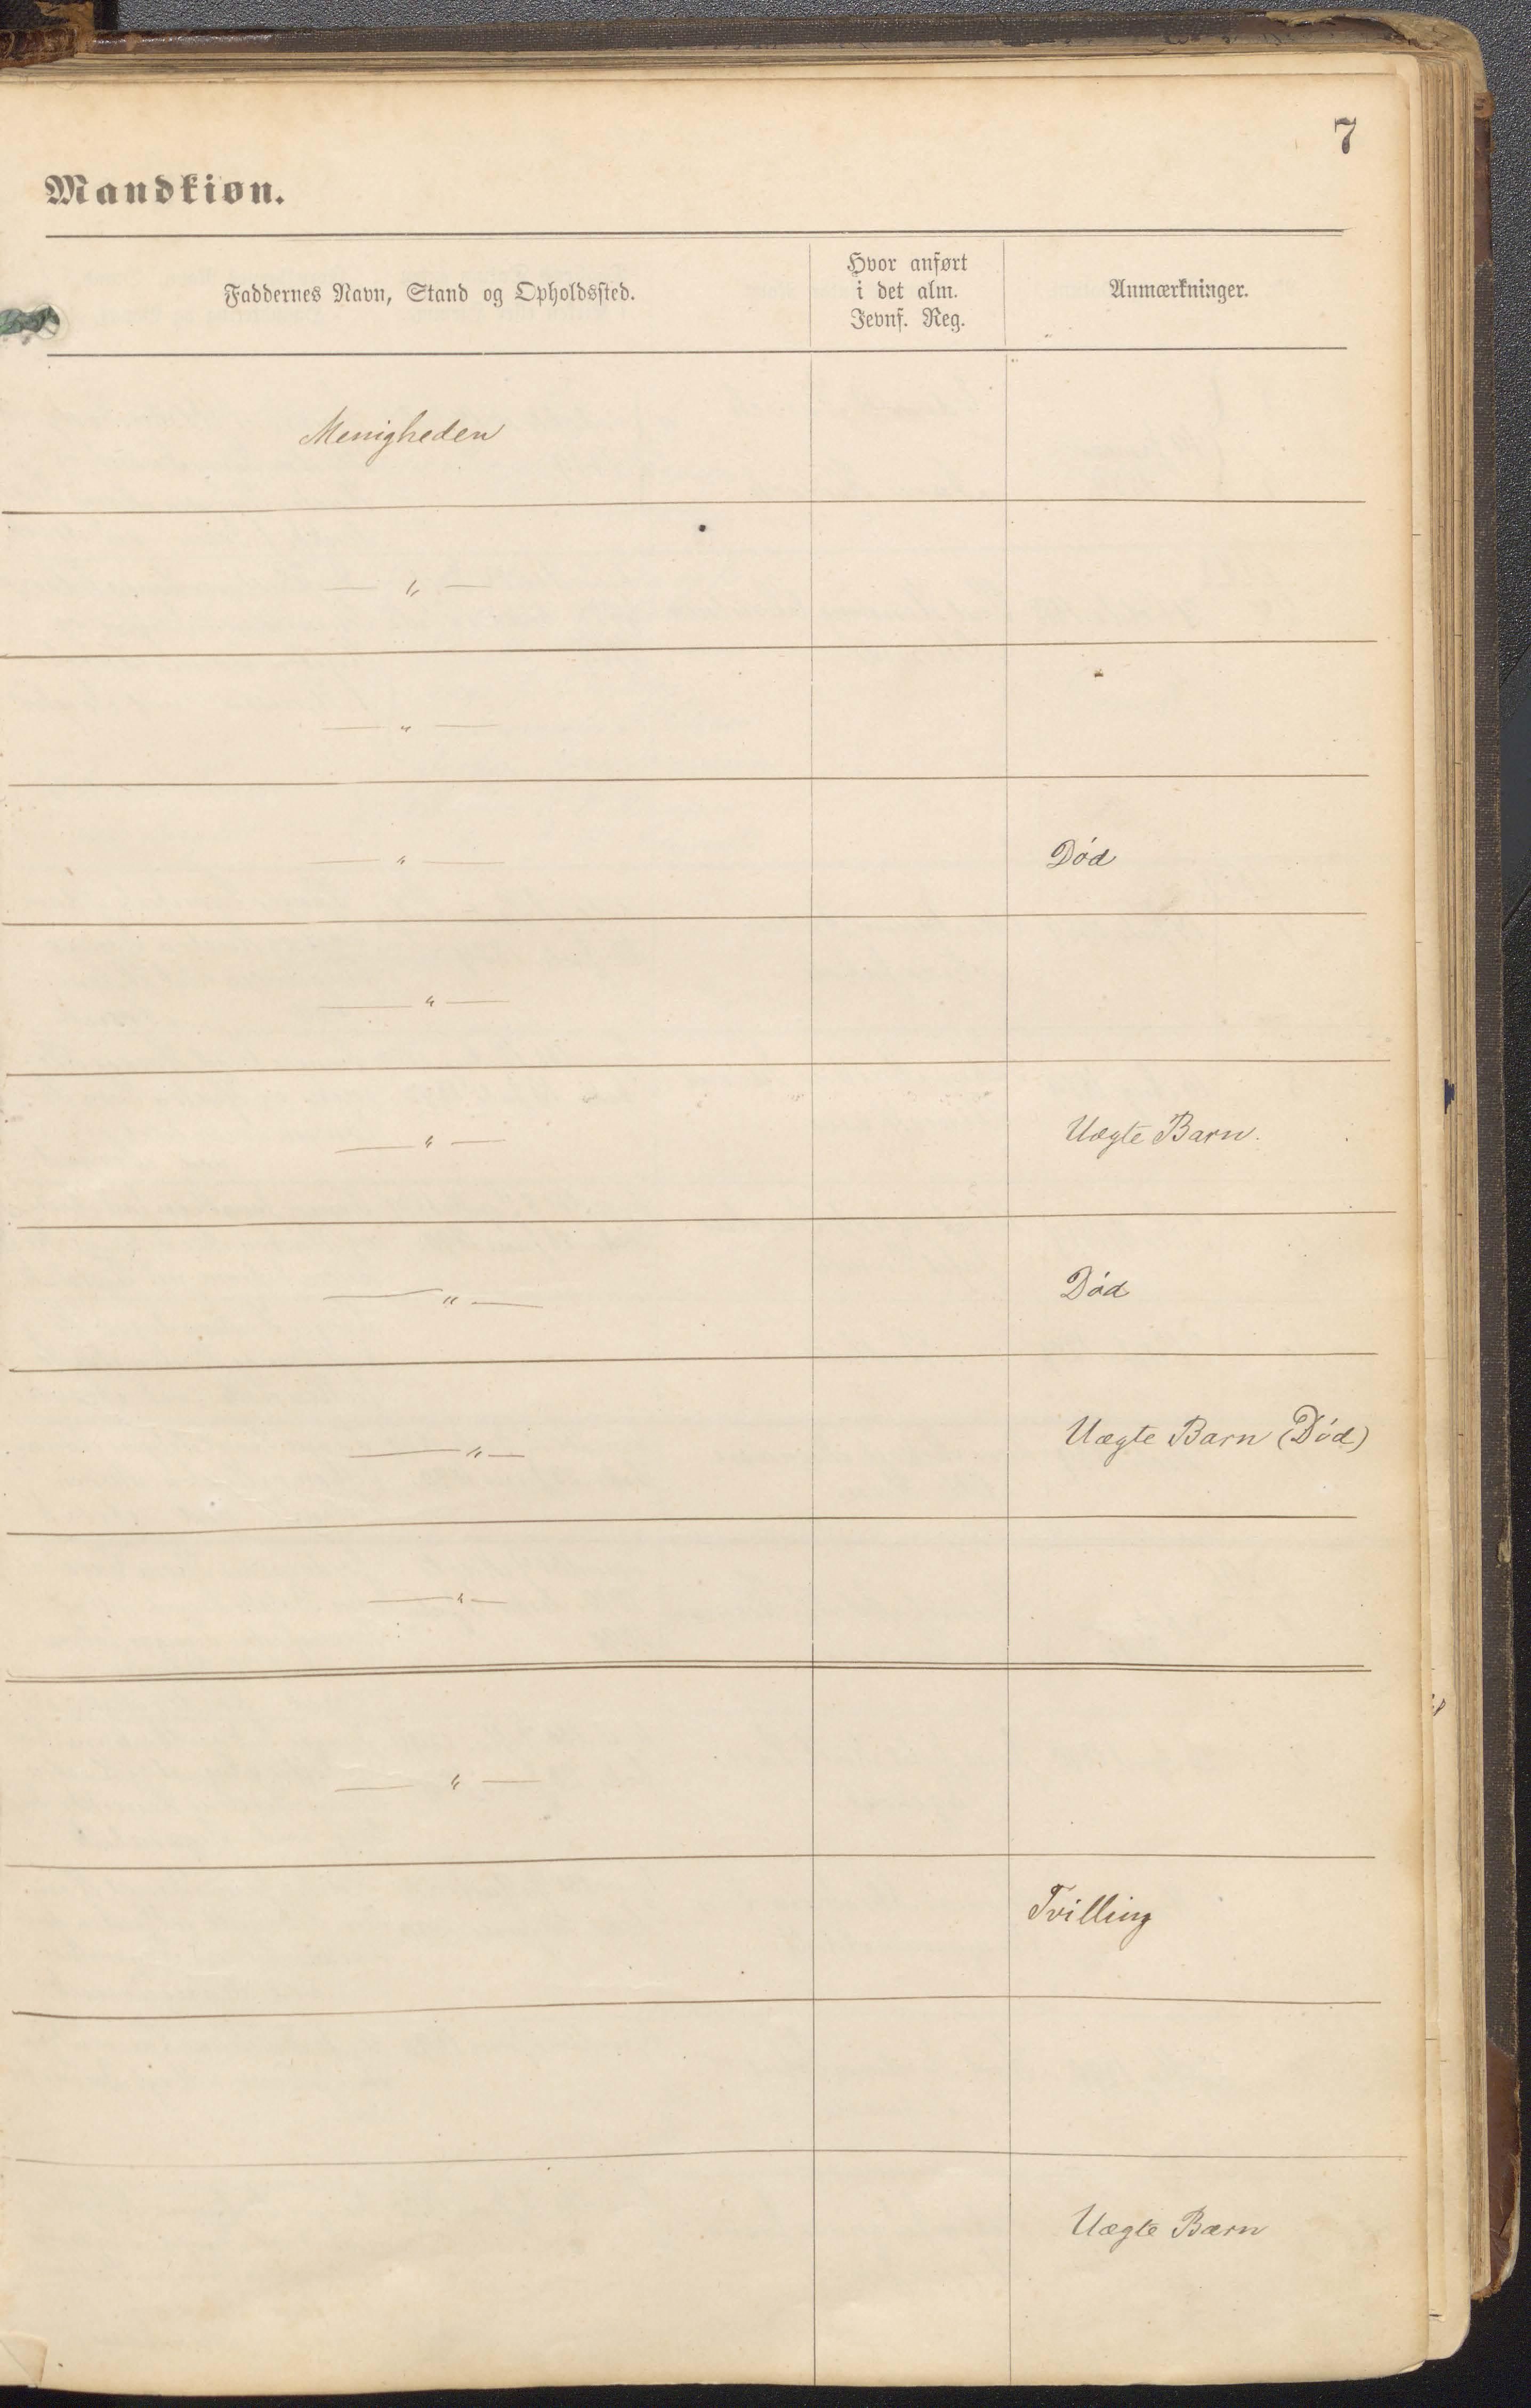 7
Mandkiøn.
Faddernes Navn, Stand og Opholdssted.
Hvor anført
i det alm.
Jevnf. Reg.
Anmærkninger.
Menigheden
— " —
— " —
— " —
Død
— " —
— " —
Uægte Barn.
— " —
Død
— " —
Uægte Barn (Død)
— " —
— " —
Tvilling
Uægte Barn